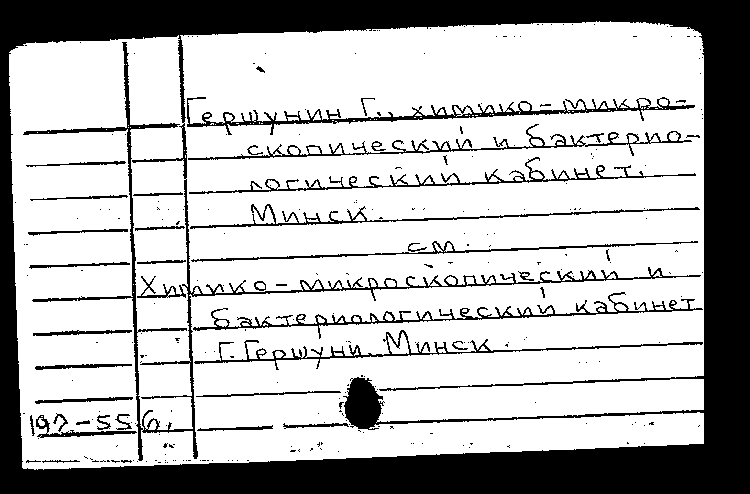 Гершунин Г., химико-микро-
скопический и бактерио-
логический кабинет.
Минск.
см.
Химико-микроскопический и
бактериологический кабинет
Г. Гершуни. Минск.
197-55б,